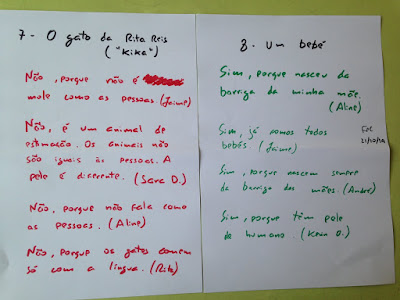 7 - O gato da Rita Reis
("Kika")
Não, porque não é
mole como as pessoas. (Jaime)
Não, é um animal de
estimação. Os animais não
são iguais às pessoas. A
pele é diferente. (Sara D.)
Não, porque não fala como
as pessoas. (Aline)
Não, porque os gatos comem
só com a língua. (Rita)
8. Um bebé
Sim, porque nasceu da
barriga da minha mãe.
(Aline)
Sim, já fomos todos
bebés (Jaime)
Sim, porque nascem sempre
da barriga das mães. (André)
Sim, porque têm pele
de humano. (Kevin D.)